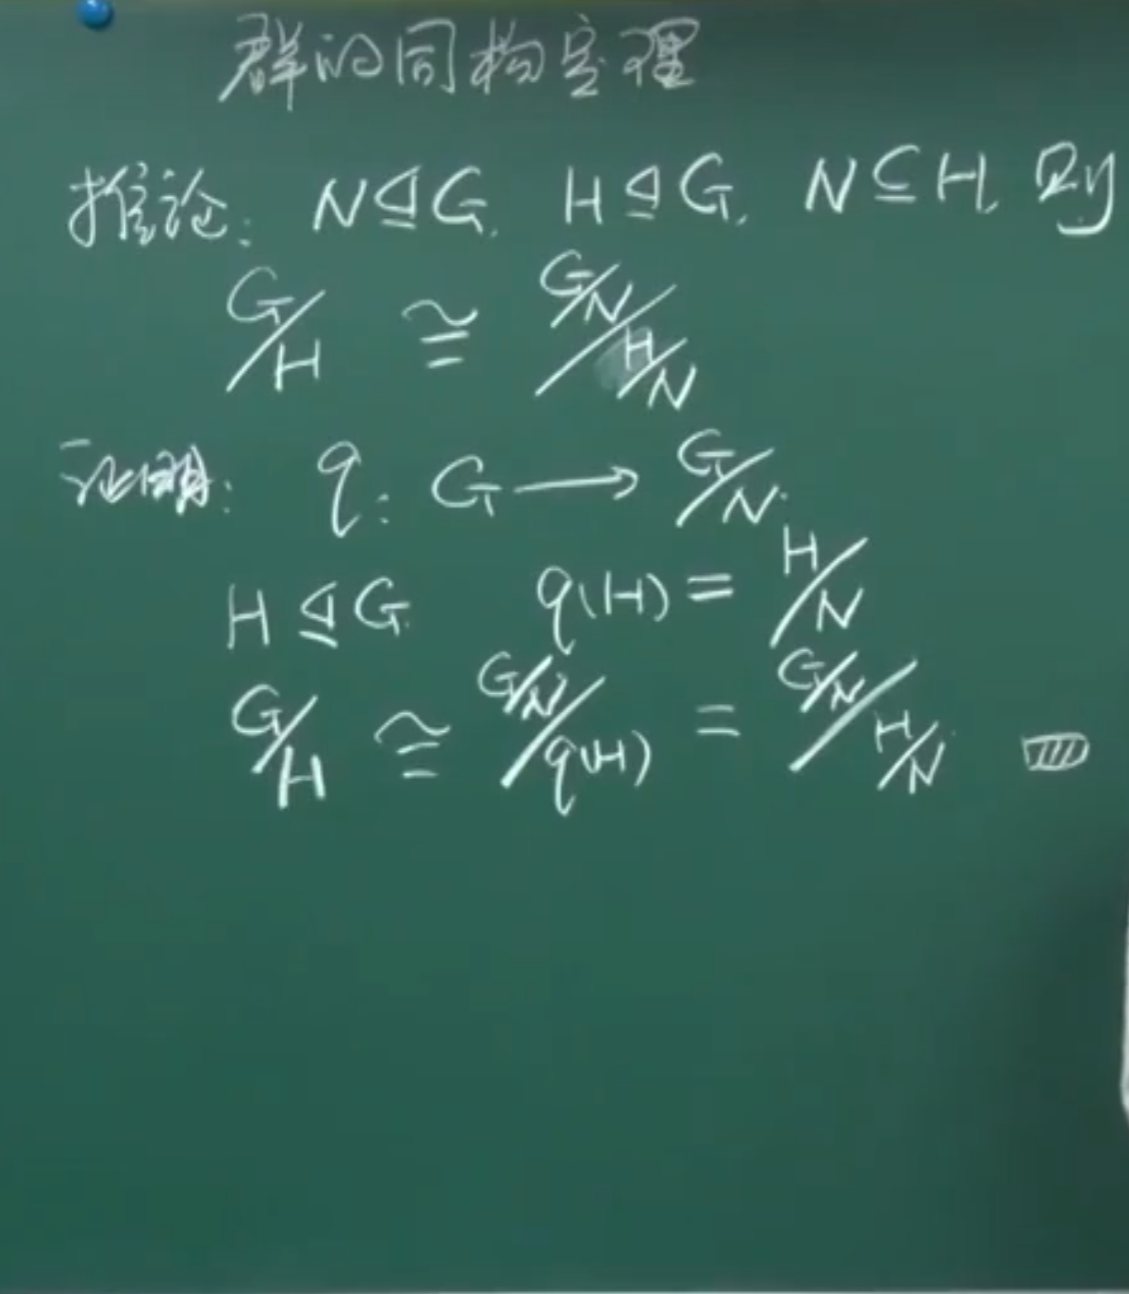 群的同构定理
推论: N⊴G. H⊴G. N⊆H. 则
G/H ≅ (G/N)/(H/N)
证明: q: G⟶G/N.
H⊴G. q(H) = H/N
G/H ≅ (G/N)/q(H) = (G/N)/(H/N)